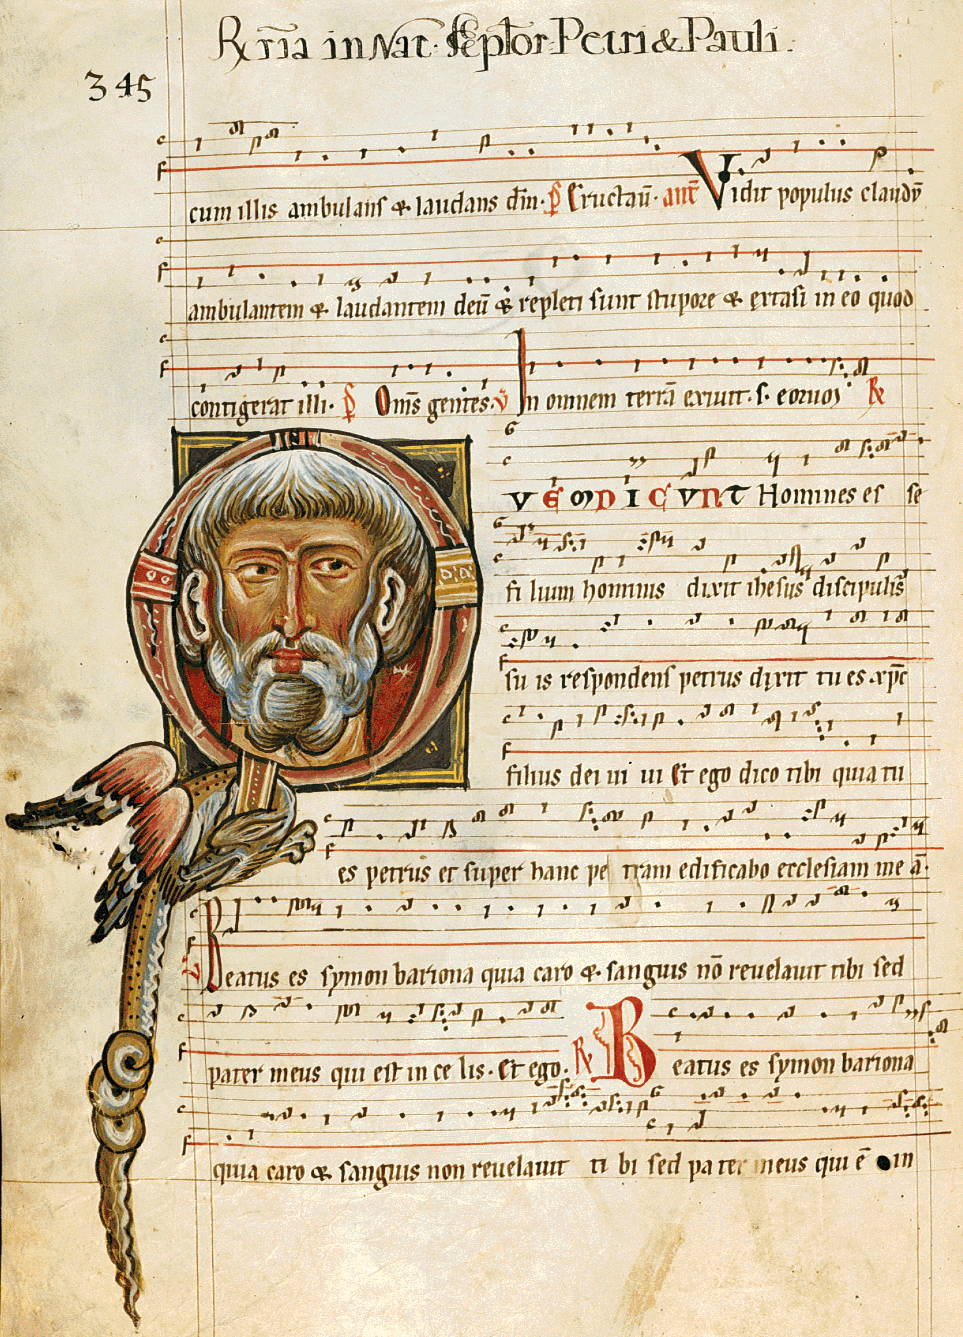 R̷ r̄ia in Nat. Sc̄ Ap̄lor Petri & Pauli.
345
cum illis ambulans & laudans dn̄m. p̄s Eructauit. ant̄ Vidit populus claudū
ambulantem & laudantem deū & repleti sunt stupore & extasi in eo quod
contigerat illi. p̄s Om̄s gentes. v̄ In omnem terrā exiuit. s. eorum R̷
VEM DICUNT Homines es se
fi lium hominis dixit ihesus discipulis
su is respondens petrus dixit tu es xp̄c
filius dei ui ui Et ego dico tibi quia tu
es petrus et super hanc pe tram edificabo ecclesiam me ā.
v̄ Beatus es symon bariona quia caro & sanguis nō reuelauit tibi sed
pater meus qui est in ce lis. Et ego. R̷ Beatus es symon bariona
quia caro & sanguis non reuelauit ti bi sed pa ter meus qui ē in